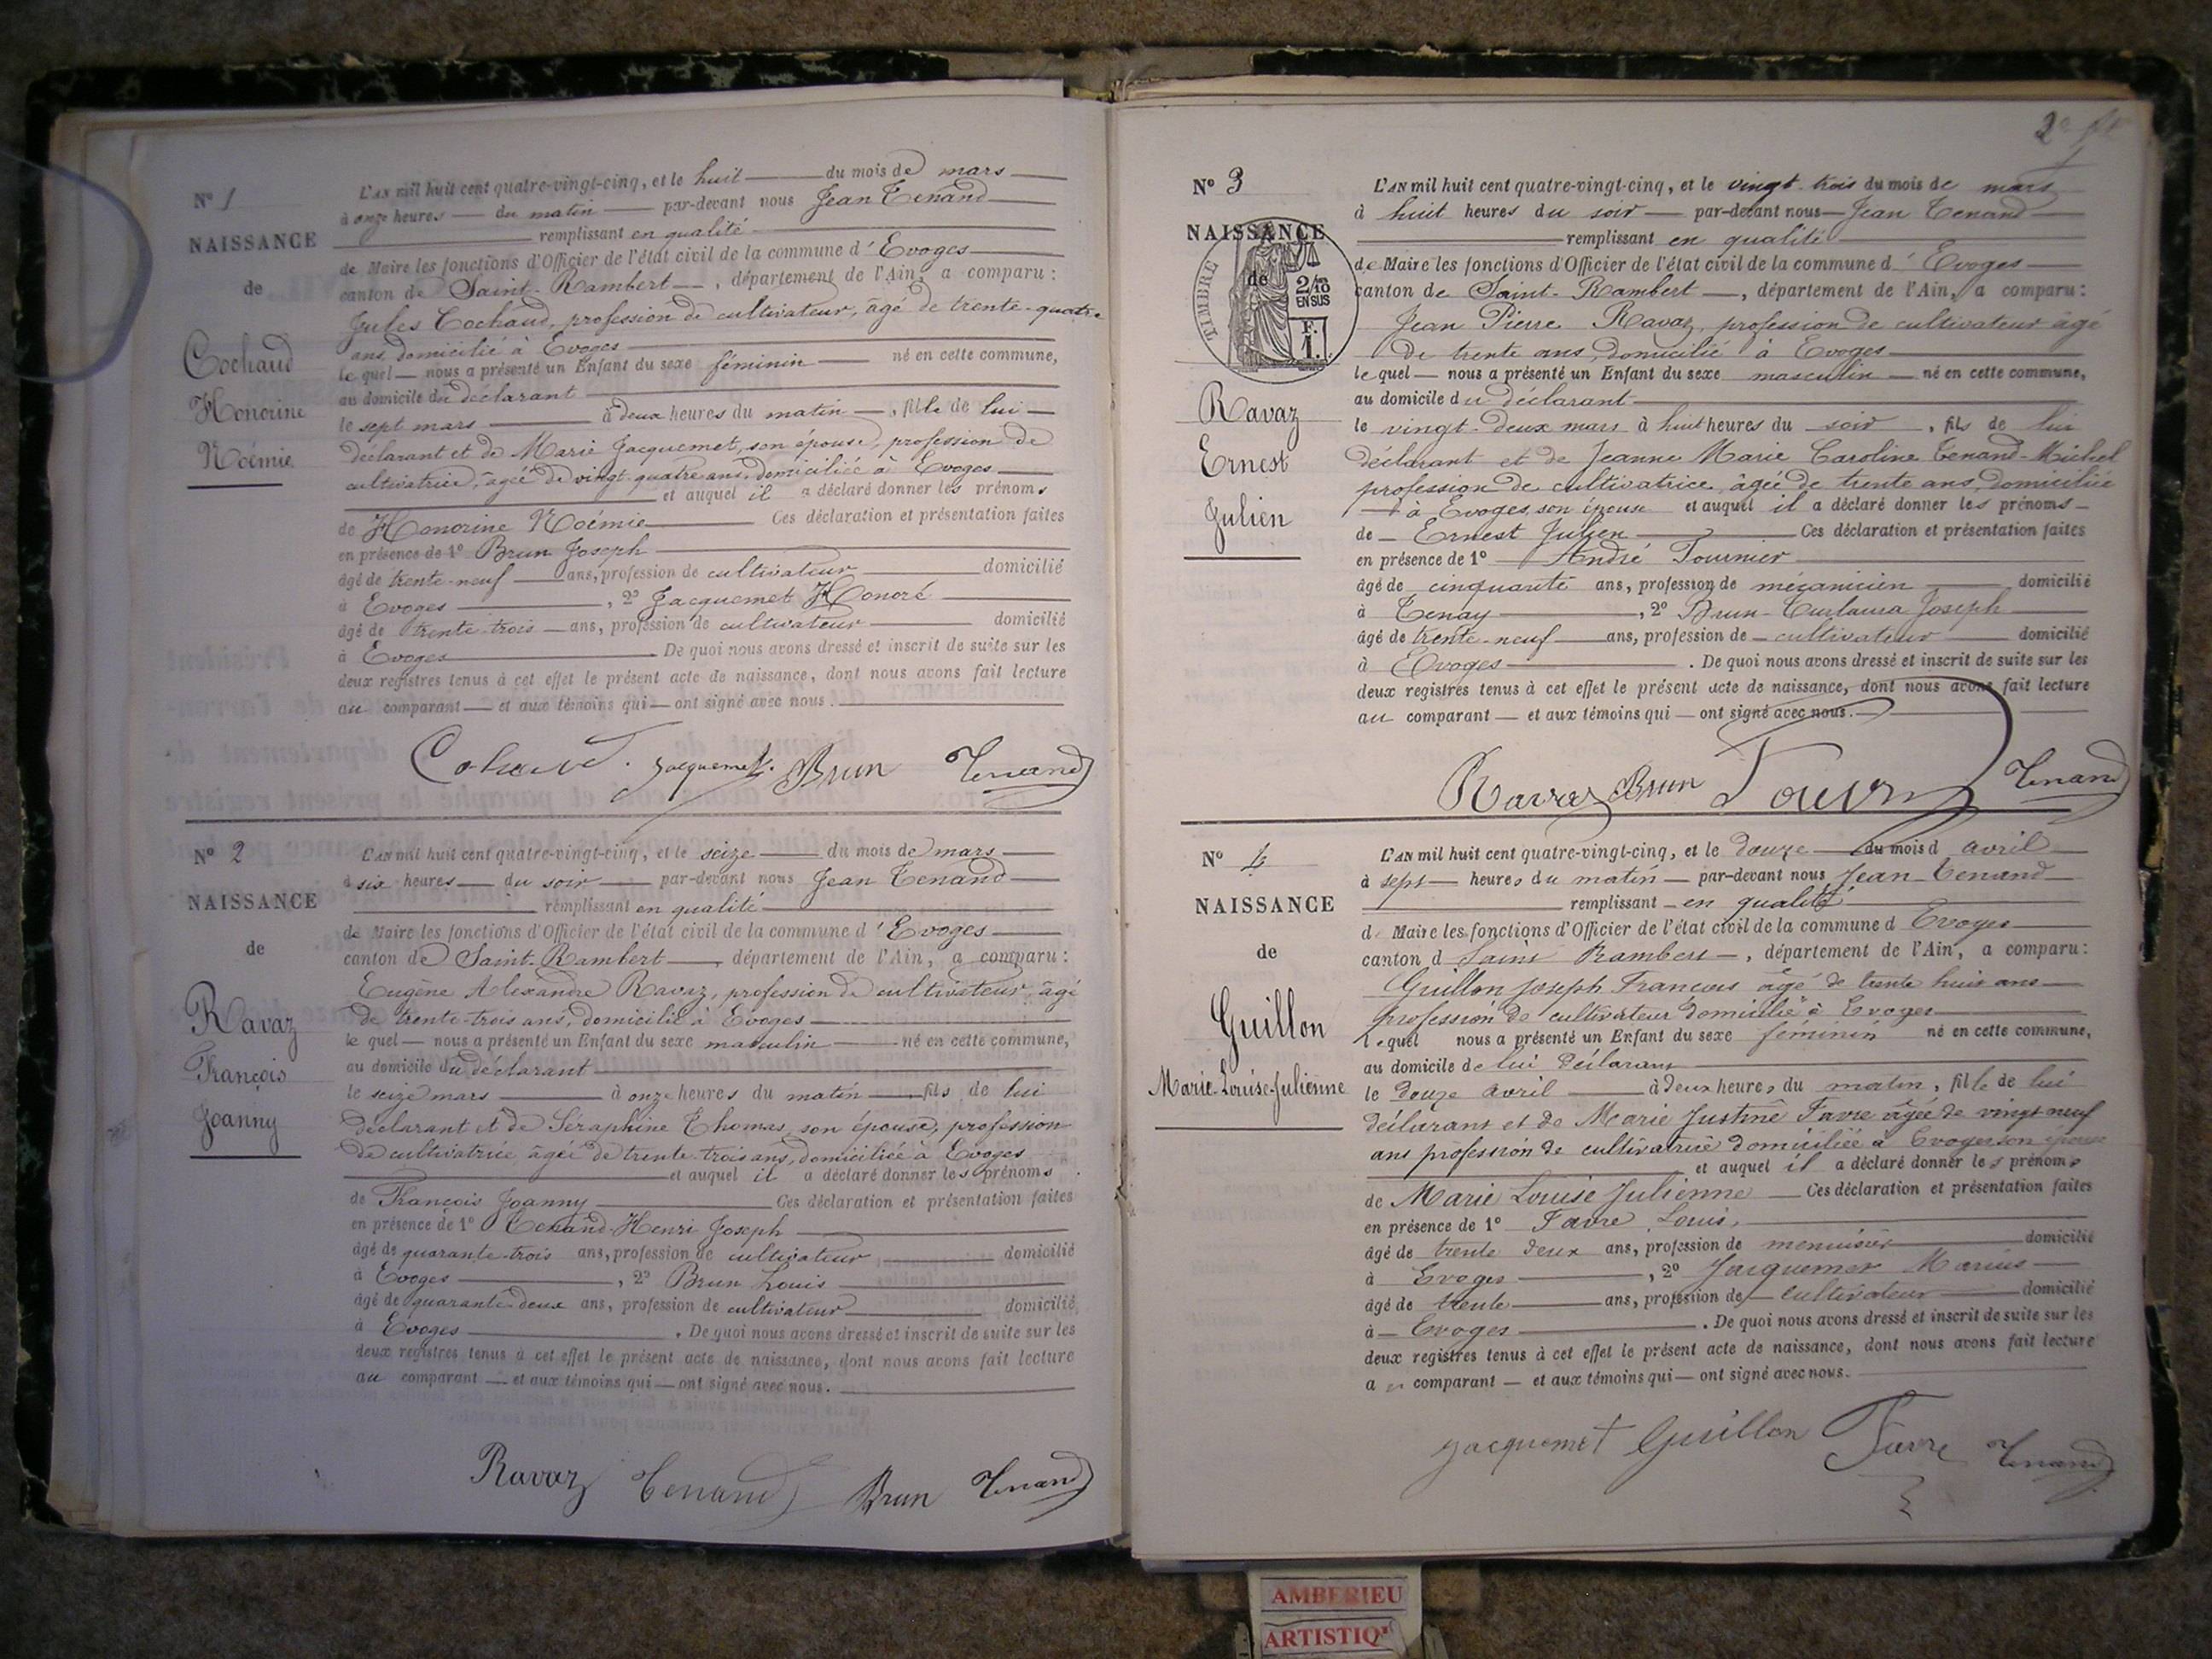 N° 1
NAISSANCE
de
Cochaud
Honorine
Noémie
L'AN mil huit cent quatre-vingt-cinq, et le huit du mois de mars
à onze heures du matin par-devant nous Jean Tenand
remplissant en qualité
de Maire les fonctions d'Officier de l'état civil de la commune d'Evoges
canton de Saint-Rambert, département de l'Ain, a comparu :
Jules Cochaud, profession de cultivateur, âgé de trente-quatre
ans, domicilié à Evoges
lequel nous a présenté un Enfant du sexe féminin né en cette commune,
au domicile du déclarant
le sept mars à deux heures du matin, fille de lui
déclarant et de Marie Jacquemet, son épouse, profession de
cultivatrice, âgée de vingt-quatre ans, domiciliée à Evoges
et auquel il a déclaré donner les prénoms
de Honorine Noémie Ces déclaration et présentation faites
en présence de 1° Brun Joseph
âgé de trente-neuf ans, profession de cultivateur domicilié
à Evoges, 2° Jacquemet Honoré
âgé de trente-trois ans, profession de cultivateur domicilié
à Evoges. De quoi nous avons dressé et inscrit de suite sur les
deux registres tenus à cet effet le présent acte de naissance, dont nous avons fait lecture
au comparant et aux témoins qui ont signé avec nous.
Jacquemet. Brun Tenand
N° 2
NAISSANCE
de
Ravaz
François
Joanny
L'AN mil huit cent quatre-vingt-cinq, et le seize du mois de mars
à six heures du soir par-devant nous Jean Tenand
remplissant en qualité
de Maire les fonctions d'Officier de l'état civil de la commune d'Evoges
canton de Saint-Rambert, département de l'Ain, a comparu :
Eugène Alexandre Ravaz, profession de cultivateur, âgé
de trente-trois ans, domicilié à Evoges
lequel nous a présenté un Enfant du sexe masculin né en cette commune,
au domicile du déclarant
le seize mars à onze heures du matin fils de lui
déclarant et de Séraphine Thomas, son épouse, profession
de cultivatrice âgée de trente-trois ans, domiciliée à Evoges
et auquel il a déclaré donner les prénoms
de François Joanny Ces déclaration et présentation faites
en présence de 1° Tenand Henri Joseph
âgé de quarante-trois ans, profession de cultivateur domicilié
à Evoges, 2° Brun Louis
âgé de quarante-deux ans, profession de cultivateur domicilié
à Evoges. De quoi nous avons dressé et inscrit de suite sur les
deux registres tenus à cet effet le présent acte de naissance, dont nous avons fait lecture
au comparant et aux témoins qui ont signé avec nous.
Ravaz Tenand Brun Tenand
N° 3
NAISSANCE
de
TIMBRE
2/10
EN SUS
F.
1.
Ravaz
Ernest
Julien
L'AN mil huit cent quatre-vingt-cinq, et le vingt-trois du mois de mars
à huit heures du soir par-devant nous Jean Tenand
remplissant en qualité
de Maire les fonctions d'Officier de l'état civil de la commune d'Evoges
canton de Saint-Rambert, département de l'Ain, a comparu :
Jean Pierre Ravaz, profession de cultivateur âgé
de trente ans, domicilié à Evoges
lequel nous a présenté un Enfant du sexe masculin né en cette commune,
au domicile du déclarant
le vingt-deux mars à huit heures du soir, fils de lui
déclarant et de Jeanne Marie Caroline Tenand-Michel
profession de cultivatrice, âgée de trente ans, domiciliée
à Evoges, son épouse et auquel il a déclaré donner les prénoms
de Ernest Julien Ces déclaration et présentation faites
en présence de 1° André Tournier
âgé de cinquante ans, profession de mécanicien domicilié
à Tenay, 2° Brun- Joseph
âgé de trente-neuf ans, profession de cultivateur domicilié
à Evoges. De quoi nous avons dressé et inscrit de suite sur les
deux registres tenus à cet effet le présent acte de naissance, dont nous avons fait lecture
au comparant et aux témoins qui ont signé avec nous.
Ravaz Brun Tenand
N° 4
NAISSANCE
de
Guillon
Marie-Louise-Julienne
L'AN mil huit cent quatre-vingt-cinq, et le douze du mois d avril
à sept heures du matin par-devant nous Jean Tenand
remplissant en qualité
d Maire les fonctions d'Officier de l'état civil de la commune d Evoges
canton d Saint Rambert, département de l'Ain, a comparu :
Guillon Joseph François âgé de trente huit ans
profession de cultivateur domicilié à Evoges
lequel nous a présenté un Enfant du sexe féminin né en cette commune,
au domicile de lui déclarant
le douze avril à deux heures du matin, fille de lui
déclarant et de Marie Justine Favre âgée de vingt neuf
ans profession de cultivatrice domiciliée à Evoges son épouse
et auquel il a déclaré donner les prénoms
de Marie Louise Julienne Ces déclaration et présentation faites
en présence de 1° Favre Louis,
âgé de trente deux ans, profession de menuisier domicilié
à Evoges, 2° Jacquemet Marius
âgé de trente ans, profession de cultivateur domicilié
à Evoges. De quoi nous avons dressé et inscrit de suite sur les
deux registres tenus à cet effet le présent acte de naissance, dont nous avons fait lecture
au comparant et aux témoins qui ont signé avec nous.
Jacquemet Guillon Favre Tenand
AMBERIEU
ARTISTIQ